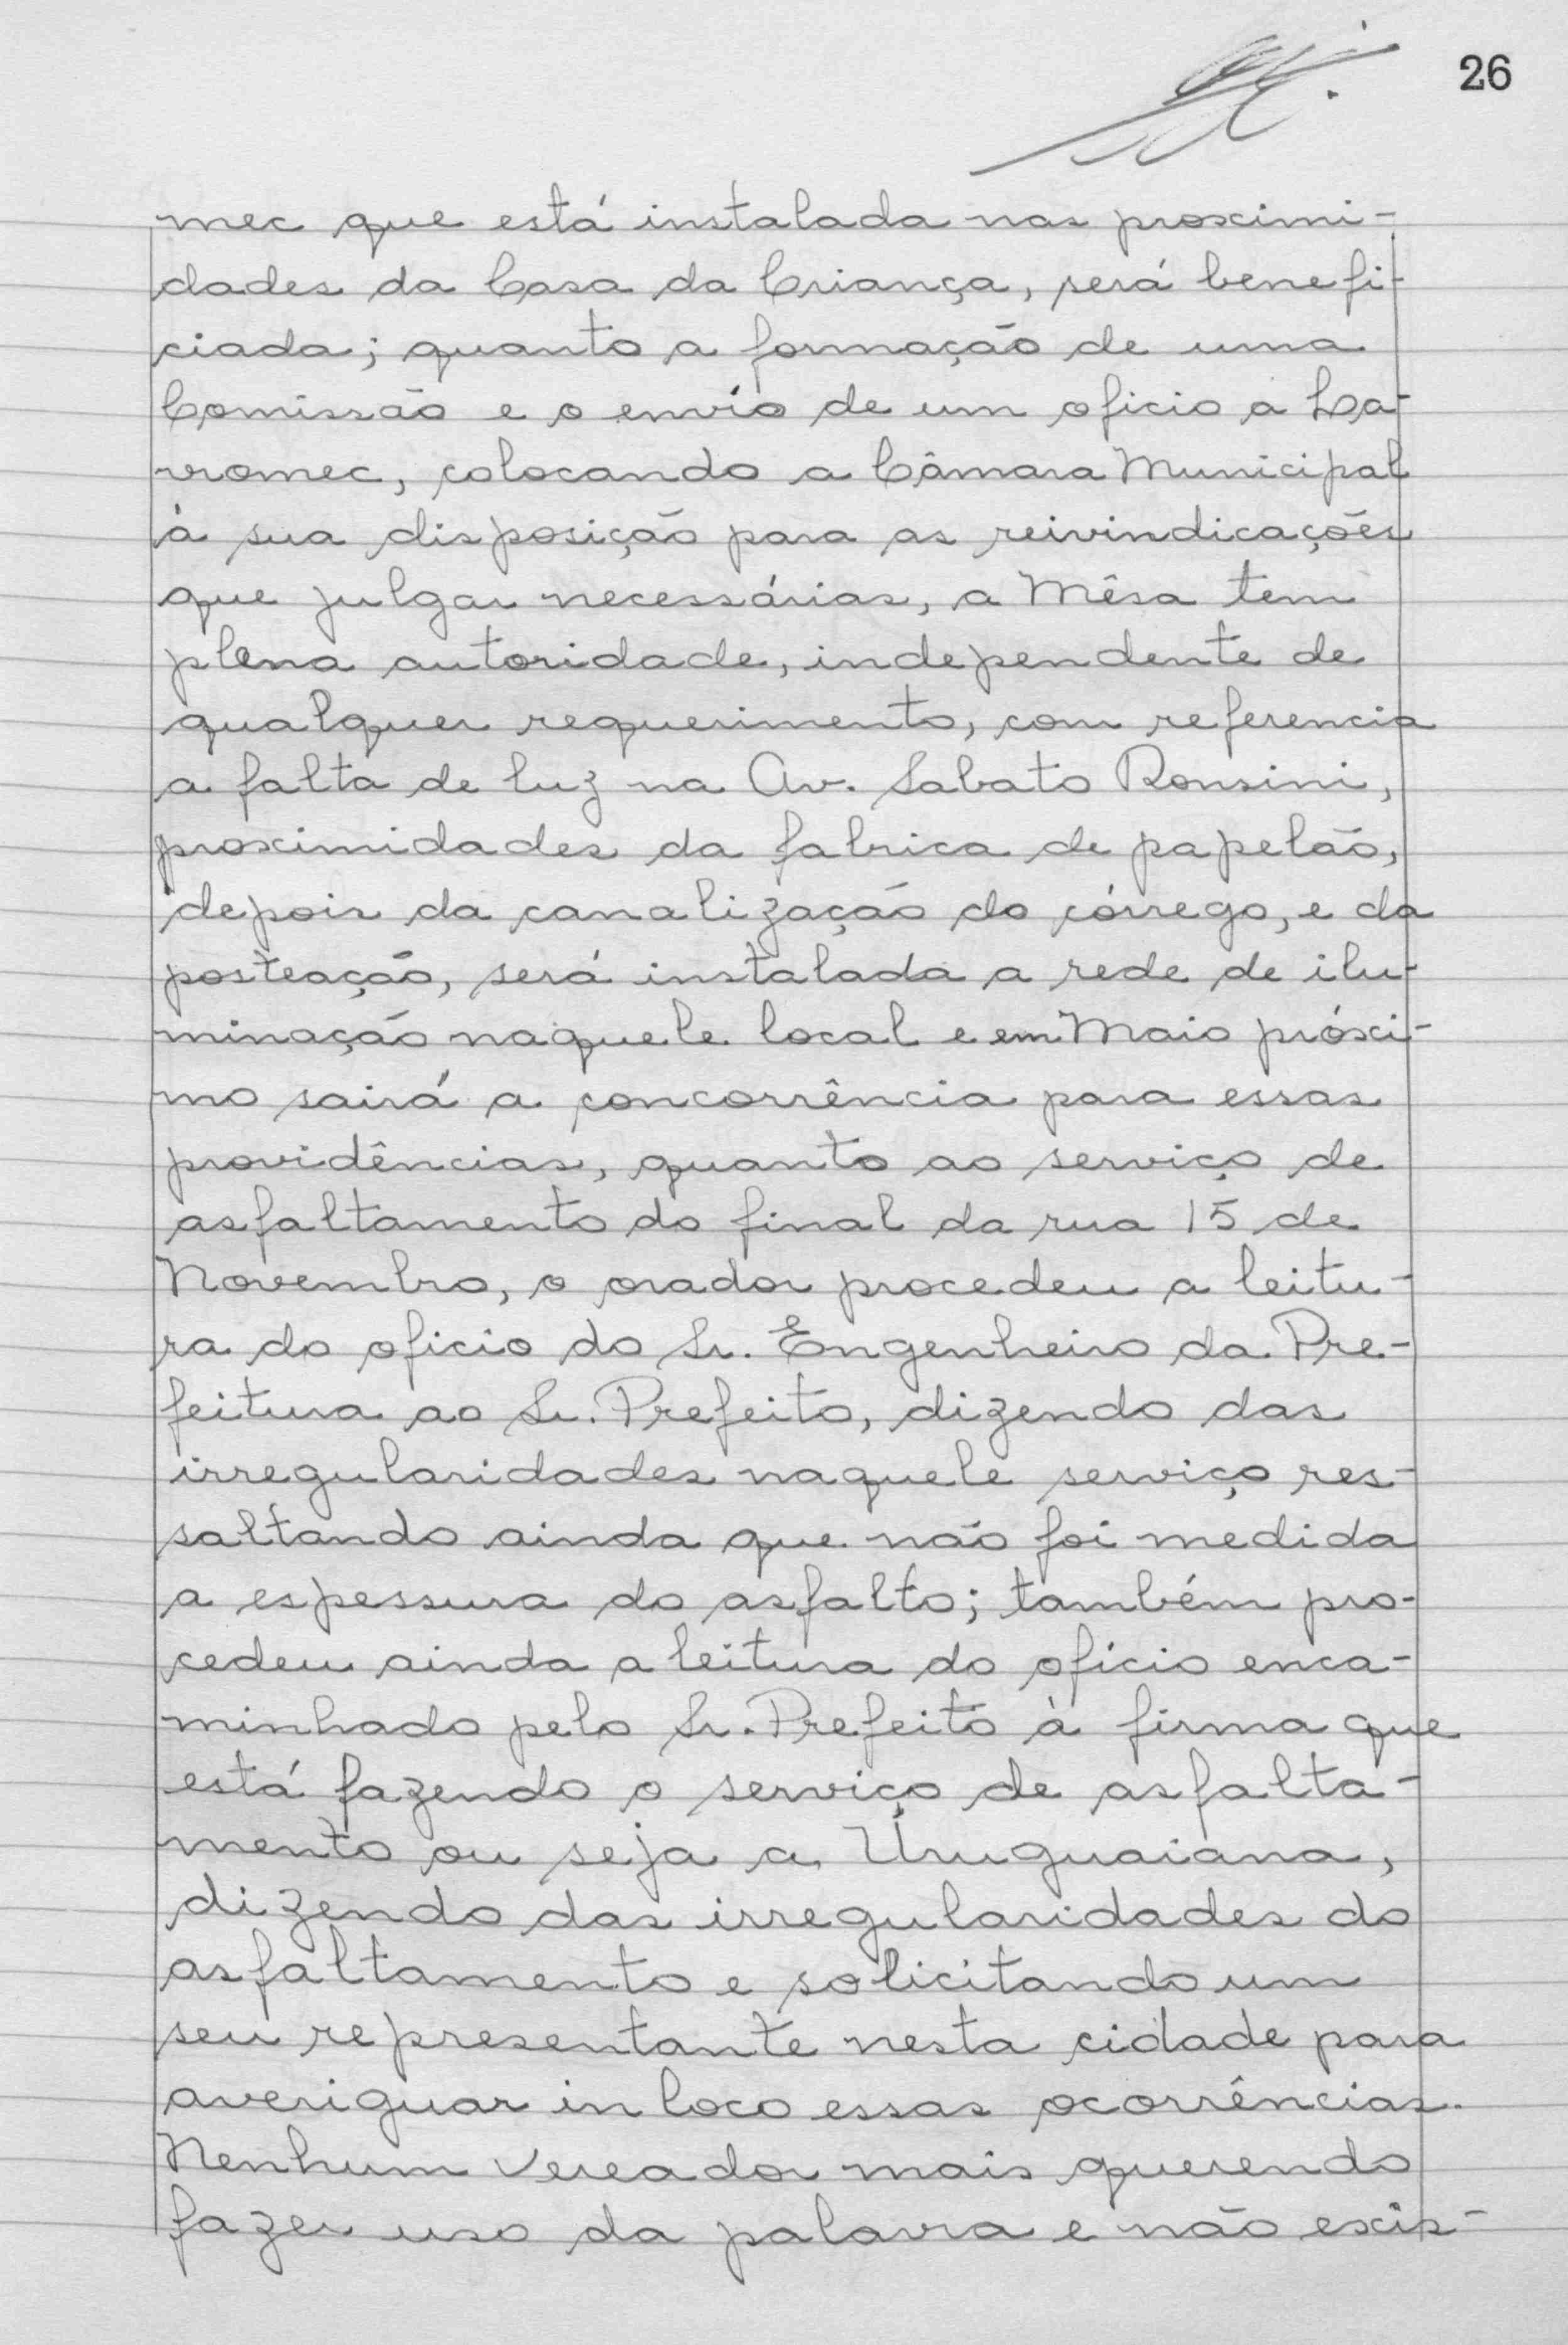 26
mec que está instalada nas proximi-
dades da Casa da Criança, será benefi-
ciada; quanto a formação de uma
Comissão e o envio de um oficio a La-
vromec, colocando a Câmara Municipal
à sua disposição para as reivindicações
que julgar necessárias, a Mêsa tem
plena autoridade, independente de
qualquer requerimento, com referencia
a falta de luz na Av. Sabato Ronsini,
proximidades da fabrica de papelão,
depois da canalização do córrego, e da
posteação, será instalada a rede de ilu-
minação naquele local e em Maio próxi-
mo sairá a concorrência para essas
providências, quanto ao serviço de
asfaltamento do final da rua 15 de
Novembro, o orador procedeu a leitu-
ra do oficio do Sr. Engenheiro da Pre-
feitura ao Sr. Prefeito, dizendo das
irregularidades naquele serviço res-
saltando ainda que não foi medida
a espessura do asfalto; também pro-
cedeu ainda a leitura do ofício enca-
minhado pelo Sr. Prefeito à firma que
está fazendo o serviço de asfalta-
mento ou seja a Uruguaiana,
dizendo das irregularidades do
asfaltamento e solicitando um
seu representante nesta cidade para
averiguar in loco essas ocorrências.
Nenhum Vereador mais querendo
fazer uso da palavra e não exis-